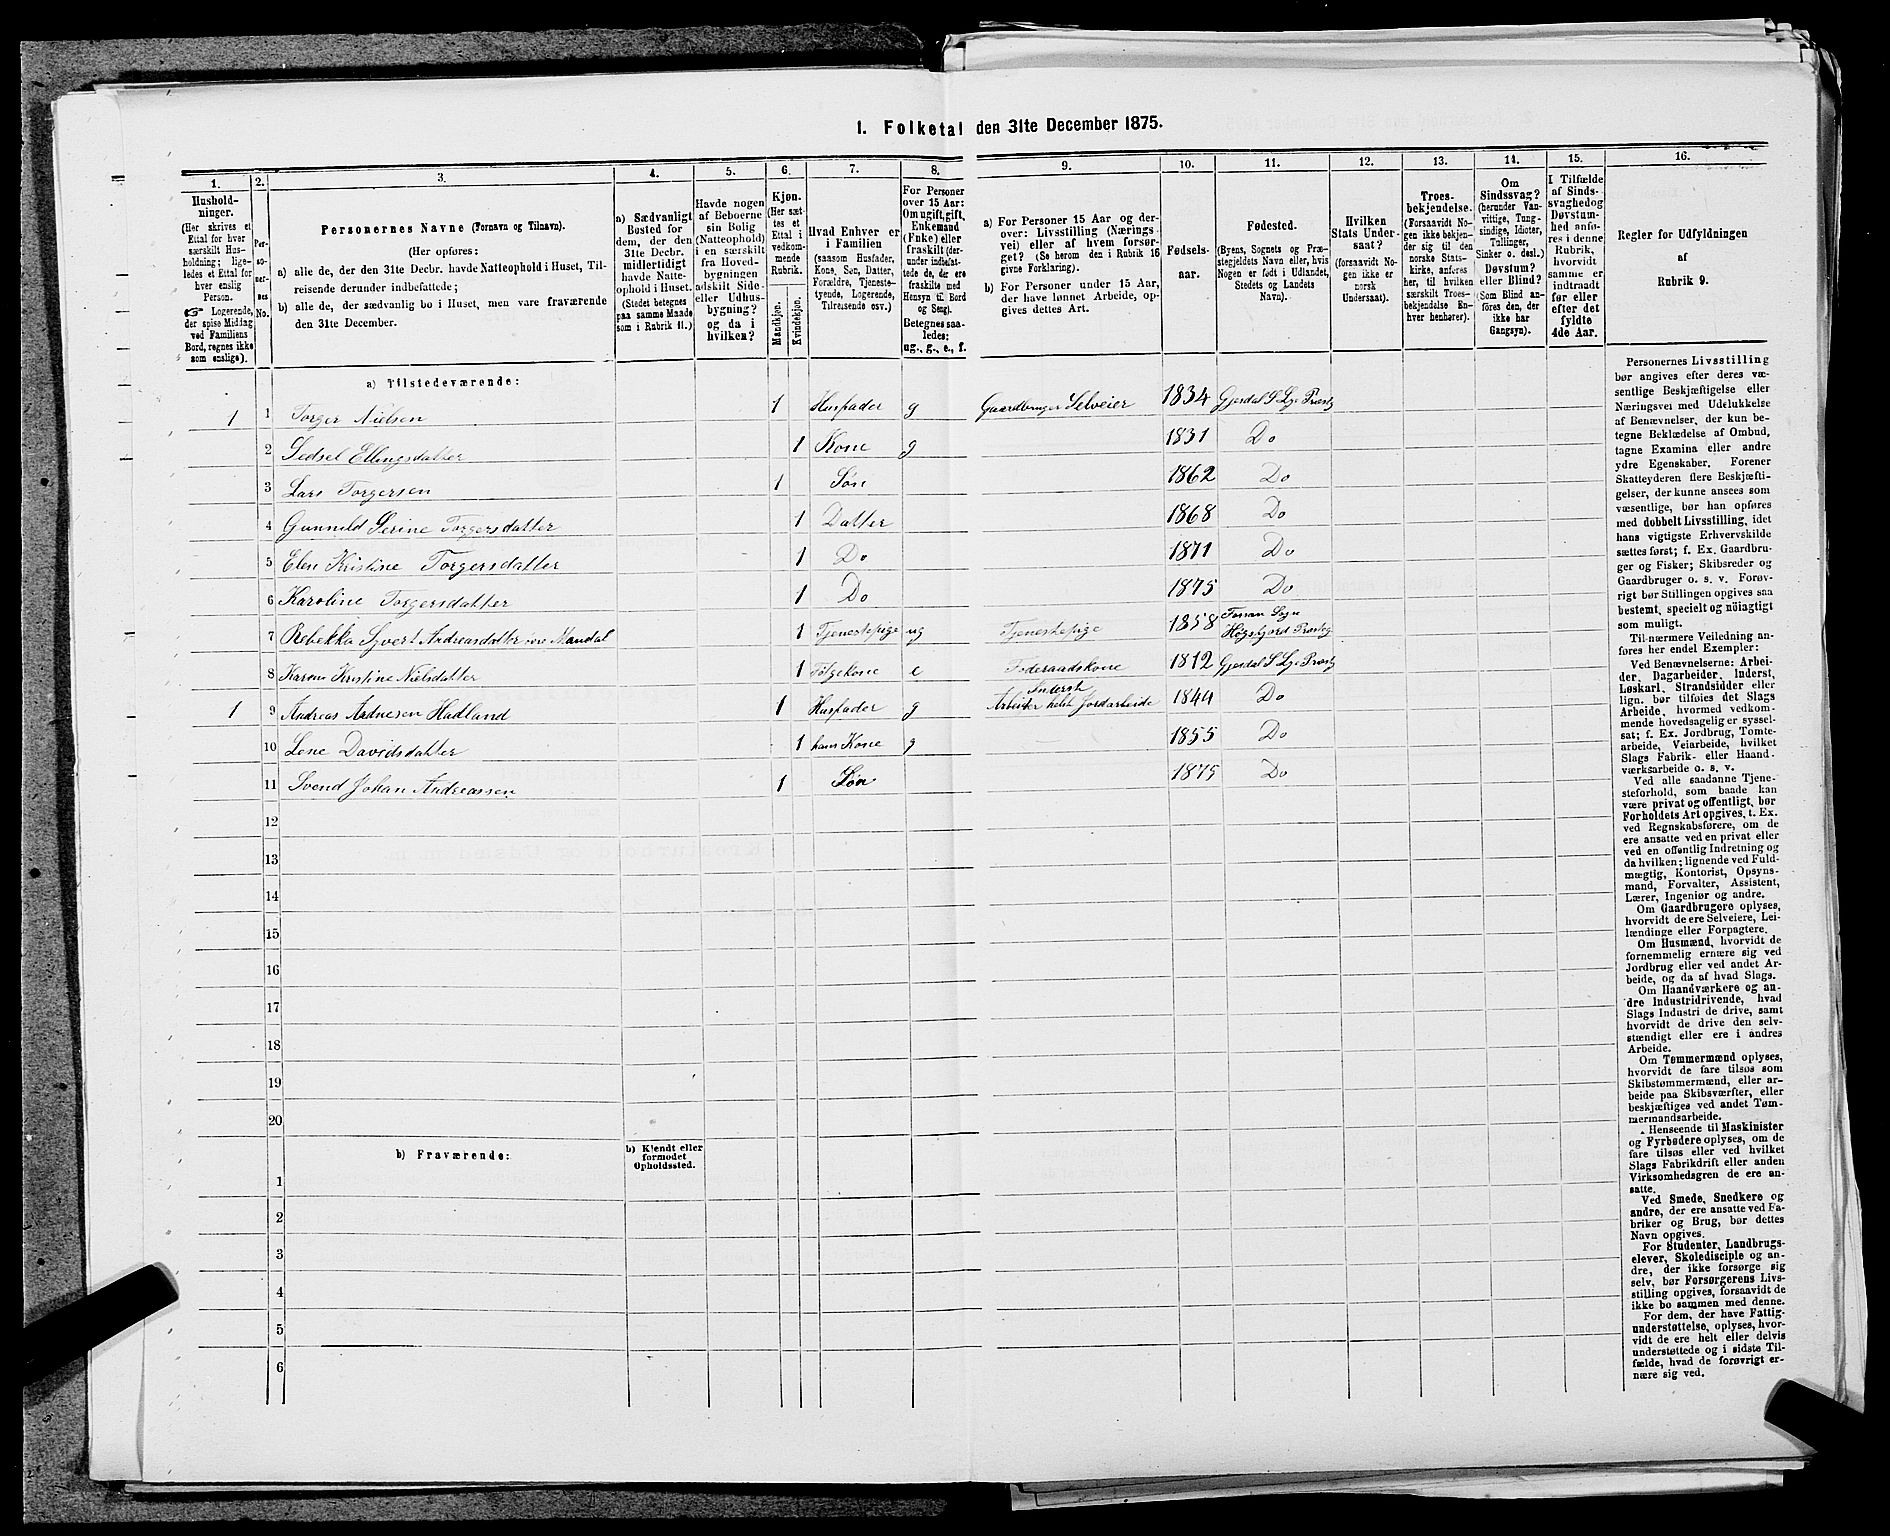 1. Folketal den 31te December 1875.
1. 2. 3. 4. 5. 6. 7. 8. 9. 10. 11. 12. 13. 14. 15. 16.
Hushold-
ninger.
(Her skrives et
Ettal for hver
særskilt Hus-
holdning; lige-
ledes et Ettal for
hver enslig
Person.
☞ Logerende,
der spise Middag
ved Familiens
Bord, regnes ikke
som enslige).
Per-
so-
ner-
nes
No.
Personernes Navne (Fornavn og Tilnavn).
(Her opføres:
a) alle de, der den 31te Decbr. havde Natteophold i Huset, Til-
reisende derunder indbefattede;
b) alle de, der sædvanlig bo i Huset, men vare fraværende
den 31te December.
a) Sædvanligt
Bosted for
dem, der den
31te Decbr.
midlertidigt
havde Natte-
ophold i Huset.
(Stedet betegnes
paa samme Maade
som i Rubrik 11.)
Havde nogen
af Beboerne
sin Bolig
(Natteophold)
i en særskilt
fra Hoved-
bygningen
adskilt Side-
eller Udhus-
bygning?
og da i
hvilken?
Kjøn.
(Her sæt-
tes et
Ettal i
vedkom-
mende
Rubrik.
Mandkjøn.
Kvindekjøn.
Hvad Enhver er
i Familien
(saasom Husfader,
Kone, Søn, Datter,
Forældre, Tjeneste-
tyende, Logerende,
Tilreisende osv.)
For Personer
over 15 Aar:
Om ugift, gift,
Enkemand
(Enke) eller
fraskilt (der-
under indbefat-
tede de, der ere
fraskilte med
Hensyn til Bord
og Seng).
Betegnes saa-
ledes:
ug., g., e., f.
a) For Personer 15 Aar og der-
over: Livsstilling (Nærings-
vei) eller af hvem forsør-
get? (Se herom den i Rubrik 16
givne Forklaring).
b) For Personer under 15 Aar,
der have lønnet Arbeide, op-
gives dettes Art.
Fødsels-
aar.
Fødested.
(Byens, Sognets og Præ-
stegjeldets Navn eller, hvis
Nogen er født i Udlandet,
Stedets og Landets
Navn).
Hvilken
Stats Under-
saat?
(forsaavidt No-
gen ikke er
norsk
Undersaat).
Troes-
bekjendelse.
(Forsaavidt No-
gen ikke bekjen-
der sig til den
norske Stats-
kirke, anføres
her, til hvilken
særskilt Troes-
bekjendelse En-
hver henhører).
Om
Sindssvag?
(herunder Van-
vittige, Tung-
sindige, Idioter,
Tullinger,
Sinker o. desl.)
Døvstum?
eller Blind?
(Som Blind an-
føres den, der
ikke har
Gangsyn).
I Tilfælde
af Sinds-
svaghed og
Døvstum-
hed anfø-
res i denne
Rubrik,
hvorvidt
samme er
indtraadt
før eller
efter det
fyldte
4de Aar.
Regler for Udfyldningen
af
Rubrik 9.
a) Tilstedeværende:
1 1 Torger Nielsen 1 Husfader g Gaardbruger Selveier 1834 Gjesdal S Lye Præstg
2 Sidsel Ellingsdatter 1 Kone g 1831 Do
3 Lars Torgersen 1 Søn 1862 Do
4 Gunnild Serine Torgersdatter 1 Datter 1868 Do
5 Elen Kristine Torgersdatter 1 Do 1871 Do
6 Karoline Torgersdatter 1 Do 1875 Do
7 Rebekka Andreasdatter Mandal 1 Tjenestepige ug Tjenestepige 1858 Forsan Sogn
Høgsfjord Præsteg
8 Karen Kristine Nielsdatter 1 e Føderaadskone 1812 Gjesdal S Lye Præstg
1 9 Andreas Hadland 1 Husfader g Inderst
Arbeider helst Jordarbeide 1849 Do
10 Lene Davidsdatter 1 hans Kone g 1855 Do
11 Svend Johan Andreassen 1 Søn 1875 Do
12
13
14
15
16
17
18
19
20
b) Fraværende:
b) Kjendt eller
formodet
Opholdssted.
1
2
3
4
5
6
Personernes Livsstilling
bør angives efter deres væ-
sentlige Beskjæftigelse eller
Næringsvei med Udelukkelse
af Benævnelser, der kun be-
tegne Beklædelse af Ombud,
tagne Examina eller andre
ydre Egenskaber. Forener
Skatteyderen flere Beskjæfti-
gelser, der kunne ansees som
væsentlige, bør han opføres
med dobbelt Livsstilling, idet
hans vigtigste Erhvervskilde
sættes først; f. Ex. Gaardbru-
ger og Fisker; Skibsreder og
Gaardbruger o. s. v. Forøv-
rigt bør Stillingen opgives saa
bestemt, specielt og nøiagtigt
som muligt.
Til nærmere Veiledning an-
føres her endel Exempler:
Ved Benævnelserne: Arbei-
der, Dagarbeider, Inderst,
Løskarl, Strandsidder eller
lign. bør tilføies det Slags
Arbeide, hvormed vedkom-
mende hovedsagelig er syssel-
sat; f. Ex. Jordbrug, Tomte-
arbeide, Veiarbeide, hvilket
Slags Fabrik- eller Haand-
værksarbeide o. s. v.
Ved alle saadanne Tjene-
steforhold, som baade kan
være privat og offentligt, bør
Forholdets Art opgives, t. Ex.
ved Regnskabsførere, om de
ere ansatte ved en privat eller
ved en offentlig Indretning og
da hvilken; lignende ved Fuld-
mægtig, Kontorist, Opsyns-
mand, Forvalter, Assistent,
Lærer, Ingeniør og andre.
Om Gaardbrugere oplyses,
hvorvidt de ere Selveiere, Lei-
lændinge eller Forpagtere.
Om Husmænd, hvorvidt de
fornemmelig ernære sig ved
Jordbrug eller ved andet Ar-
beide, og da af hvad Slags.
Om Haandværkere og an-
dre Industridrivende, hvad
Slags Industri de drive, samt
hvorvidt de drive den selv-
stændigt eller ere i andres
Arbeide.
Om Tømmermænd oplyses,
hvorvidt de fare tilsøs som
Skibstømmermænd, eller ar-
beide paa Skibsværfter, eller
beskjæftiges ved andet Tøm-
mermandsarbeide.
I Henseende til Maskinister
og Fyrbødere oplyses, om de
fare tilsøs eller ved hvilket
Slags Fabrikdrift eller anden
Virksomhedsgren de ere an-
satte.
Ved Smede, Snedkere og
andre, der ere ansatte ved Fa-
briker og Brug, bør dettes
Navn opgives.
For Studenter, Landbrugs-
elever, Skoledisciple og an-
dre, der ikke forsørge sig
selv, bør Forsørgerens Livs-
stilling opgives, forsaavidt de
ikke bo sammen med denne.
For dem, der have Fattig-
understøttelse, oplyses, hvor-
vidt de ere helt eller delvis
understøttede og i sidste Til-
fælde, hvad de forøvrigt er-
nære sig ved.